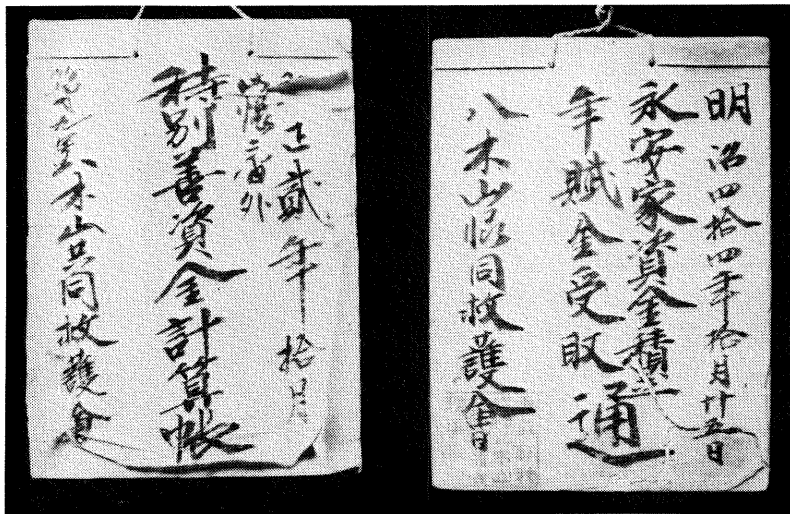 明治四拾四年拾月廿五日
永安家資金積立
年賦金受取
通
八木山協同救護会
正貳年拾月
特別善資金計算帳
八木山共同救護会